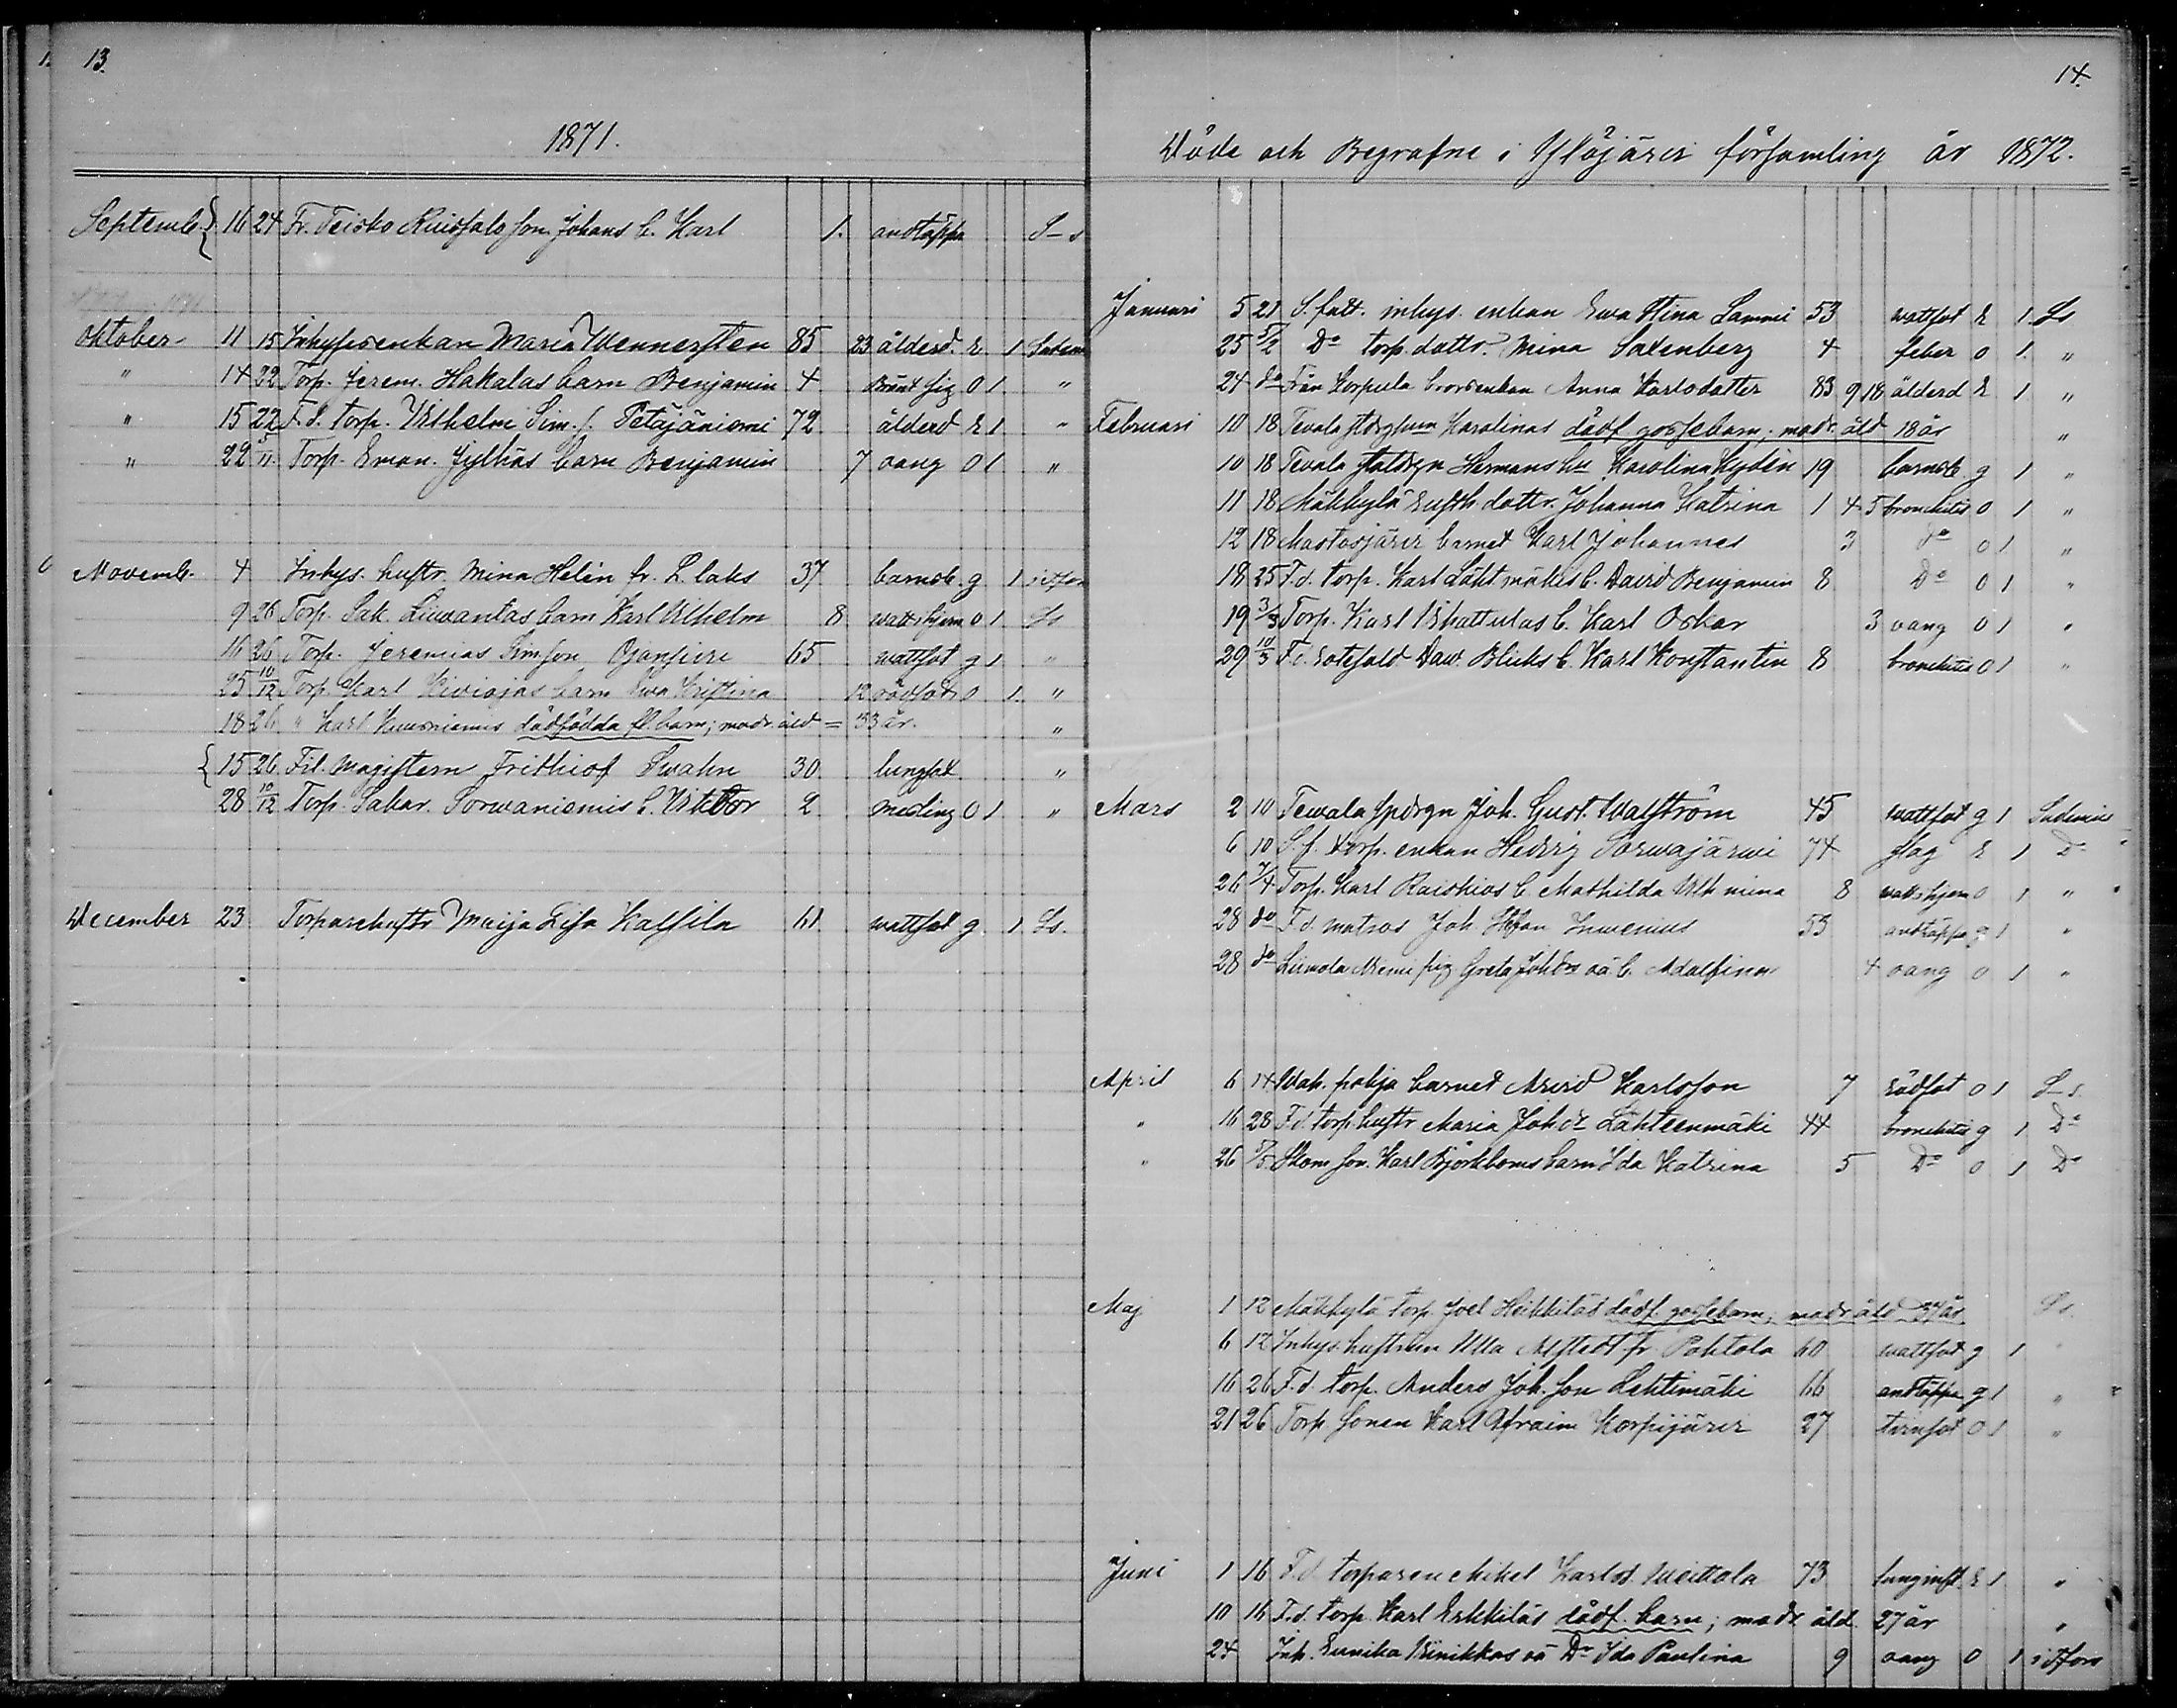 13.
1871.
Septemb. 16 24 Fr. Teisko Ruisfals son Johans b. Karl 1. andtäppa S-s
Oktober 11 15 Inhysesenkan Maria Wennersten 85 23 ålderd. E 1
" 14 22 Torp. Jerem. Hakalas barn Benjamin 4 0 1 "
" 15 22 F.d. torp. Wilhelm Sim. s. Petäjäniemi 72 ålderd E 1 "
" 22 5/11 Torp. Eman. Jylhäs barn Benjamin 7 oang 0 1 "
Novemb. 4 Inhys. hustr. Mina Helén fr. L. laks 37 barnsb. g 1
9 26 Torp. Sak. Liuvantas barn Karl Vilhelm 8 watt i hjern 0 1 Ss
16 26 Torp. Jeremias Simsson Ojansiive 65 wattsot g 1 "
25 10/12 Torp. Karl Kiviojas barn Ewa Kristina 12 rödsot 0 1 "
18 26 " Karl Kuusniemis dödfödda fl. barn; modr. åld = 33 år. "
15 26 Fil. Magistern Frithiof Swahn 30 lungsot "
28 10/12 Torp. Sakar. Sorwaniemis b. Viktor 2 mesling 0 1 "
December 23 Torparehustr Maija Lisa Kalsila 61 wattsot g 1 Ss.
14.
Döde och Begrafne i Ylöjärvi församling år 1872.
Januari 5 21 S. fatt. inhys. enkan Ewa Stina Lammi 53 wattsot E 1 Ss
25 5/2 Do torp. dottr. Mina Saxenberg 4 feber 0 1 "
24 do Från Korpula Anna Karlsdotter 83 9 18 ålderd E 1 "
Februari 10 18 Tevala Karolinas dödf. gossebarn; modr. åld 18 år "
10 18 Tevala Hermans hu Karolina Lydén 19 barnsb g 1 "
11 18 Mäkkylä dottr. Johanna Katrina 1 4 5 bronchitis 0 1 "
12 18 Mastosjärvi barnet Karl Johannes 3 do 0 1 "
18 25 F.d. torp. Karl Lähtmäkis b. David Benjamin 8 Do 0 1 "
19 3/3 Torp. Karl Vihattulas b. Karl Oskar 3 oang 0 1 "
29 10/3 F.d. Daw. Blicks b. Karl Konstantin 8 bronchitis 0 1 "
Mars 2 10 Tewala Joh. Gust. Walström 45 wattsot g 1
6 10 S. f. torp. enkan Hedvig Sorwajärwi 74 slag E 1 Do
26 7/4 Torp. Karl Raiskios b. Mathilda Vilhmina 8 watt i hjern 0 1 "
28 do F.d. matros Joh. Stefan Inwenius 53 andtäppa g 1 "
28 do Liimola Niemi pig Greta Johdrs oä b. Adolfina 4 oang 0 1 "
April 6 14 Wah. pohja barnet Arvid Karlsson 7 rödsot 0 1 S-s.
" 16 28 F.d. torp. hustr Maria Johdr Lähteenmäki 44 bronchitis g 1 Do
" 26 5/5 Skom. son. Karl Björkboms barn Ida Katrina 5 Do 0 1 Do
Maj 1 12 Mäkkylä torp. Joel Heikkiläs dödf. gossebarn; modr åld 37 år Ss.
6 12 Inhys. hustrun Ulla Alstedt fr. Pohtola 60 wattsot g 1 "
16 26 F.d. torp. Anders Joh. son Lehtimäki 66 andtäppa g 1 "
21 26 Torp. sonen Karl Efraim Korpijärvi 27 tvinsot 0 1 "
Juni 1 16 F.d. torparen Mikel Karlss. Meittola 73 lunginfl E 1 "
10 16 F.d. torp. Karl Erkkiläs dödf. barn; modr åld 27 år "
24 Inh. Eunika Kinikkas oä Dr Ida Paulina 9 oang 0 1